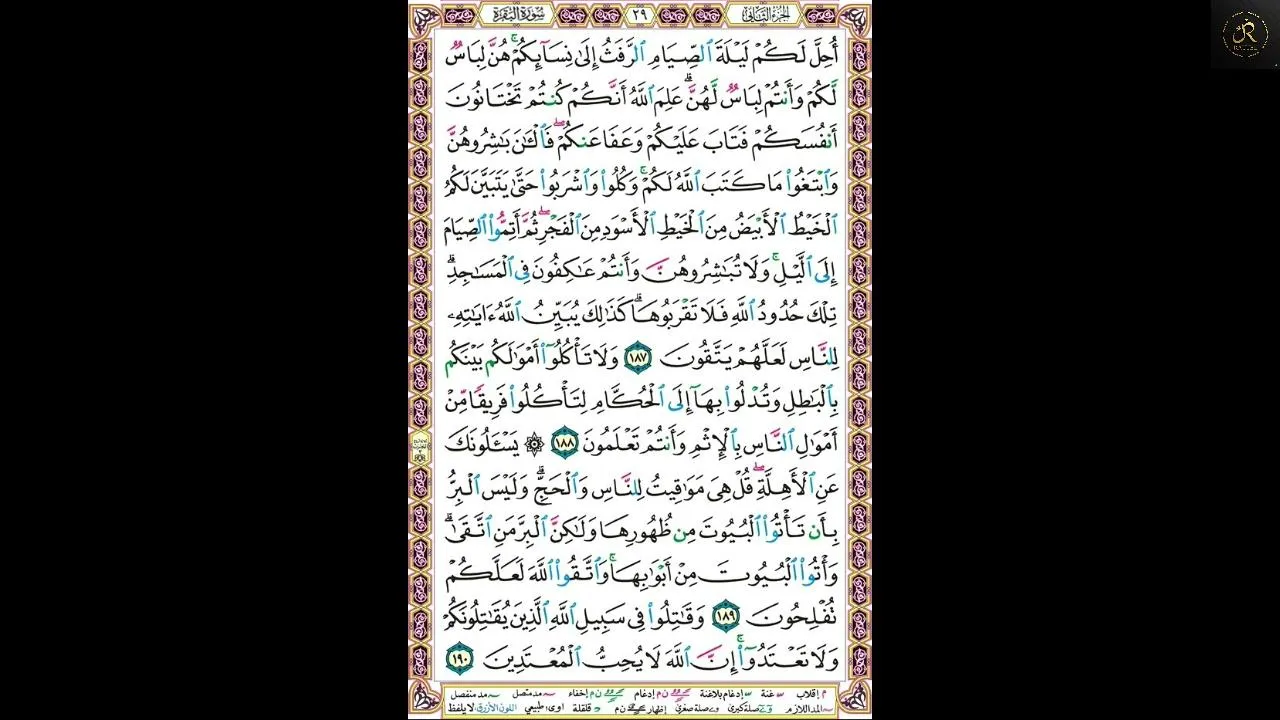 الجزء الثاني ٢٩ سورة البقرة
أُحِلَّ لَكُمْ لَيْلَةَ ٱلصِّيَامِ ٱلرَّفَثُ إِلَىٰ نِسَآئِكُمْۚ هُنَّ لِبَاسٌ
لَّكُمْ وَأَنتُمْ لِبَاسٌ لَّهُنَّۗ عَلِمَ ٱللَّهُ أَنَّكُمْ كُنتُمْ تَخْتَانُونَ
أَنفُسَكُمْ فَتَابَ عَلَيْكُمْ وَعَفَا عَنكُمْۖ فَٱلْـَٰٔنَ بَٰشِرُوهُنَّ
وَٱبْتَغُوا۟ مَا كَتَبَ ٱللَّهُ لَكُمْۚ وَكُلُوا۟ وَٱشْرَبُوا۟ حَتَّىٰ يَتَبَيَّنَ لَكُمُ
ٱلْخَيْطُ ٱلْأَبْيَضُ مِنَ ٱلْخَيْطِ ٱلْأَسْوَدِ مِنَ ٱلْفَجْرِۖ ثُمَّ أَتِمُّوا۟ ٱلصِّيَامَ
إِلَى ٱلَّيْلِۚ وَلَا تُبَٰشِرُوهُنَّ وَأَنتُمْ عَٰكِفُونَ فِى ٱلْمَسَٰجِدِۗ
تِلْكَ حُدُودُ ٱللَّهِ فَلَا تَقْرَبُوهَاۗ كَذَٰلِكَ يُبَيِّنُ ٱللَّهُ ءَايَٰتِهِۦ
لِلنَّاسِ لَعَلَّهُمْ يَتَّقُونَ ١٨٧ وَلَا تَأْكُلُوٓا۟ أَمْوَٰلَكُم بَيْنَكُم
بِٱلْبَٰطِلِ وَتُدْلُوا۟ بِهَآ إِلَى ٱلْحُكَّامِ لِتَأْكُلُوا۟ فَرِيقًا مِّنْ
أَمْوَٰلِ ٱلنَّاسِ بِٱلْإِثْمِ وَأَنتُمْ تَعْلَمُونَ ١٨٨ ۞ يَسْـَٔلُونَكَ
عَنِ ٱلْأَهِلَّةِۖ قُلْ هِىَ مَوَٰقِيتُ لِلنَّاسِ وَٱلْحَجِّۗ وَلَيْسَ ٱلْبِرُّ
بِأَن تَأْتُوا۟ ٱلْبُيُوتَ مِن ظُهُورِهَا وَلَٰكِنَّ ٱلْبِرَّ مَنِ ٱتَّقَىٰۗ
وَأْتُوا۟ ٱلْبُيُوتَ مِنْ أَبْوَٰبِهَاۚ وَٱتَّقُوا۟ ٱللَّهَ لَعَلَّكُمْ
تُفْلِحُونَ ١٨٩ وَقَٰتِلُوا۟ فِى سَبِيلِ ٱللَّهِ ٱلَّذِينَ يُقَٰتِلُونَكُمْ
وَلَا تَعْتَدُوٓا۟ۚ إِنَّ ٱللَّهَ لَا يُحِبُّ ٱلْمُعْتَدِينَ ١٩٠
م إقلاب غنة إدغام بلاغنة ن م إدغام ن م إخفاء مد متصل مد منفصل
المد اللازم صلة كبرى صلة صغرى إظهار ن م قلقلة طبيعي اللون الأزرق لا يلفظ